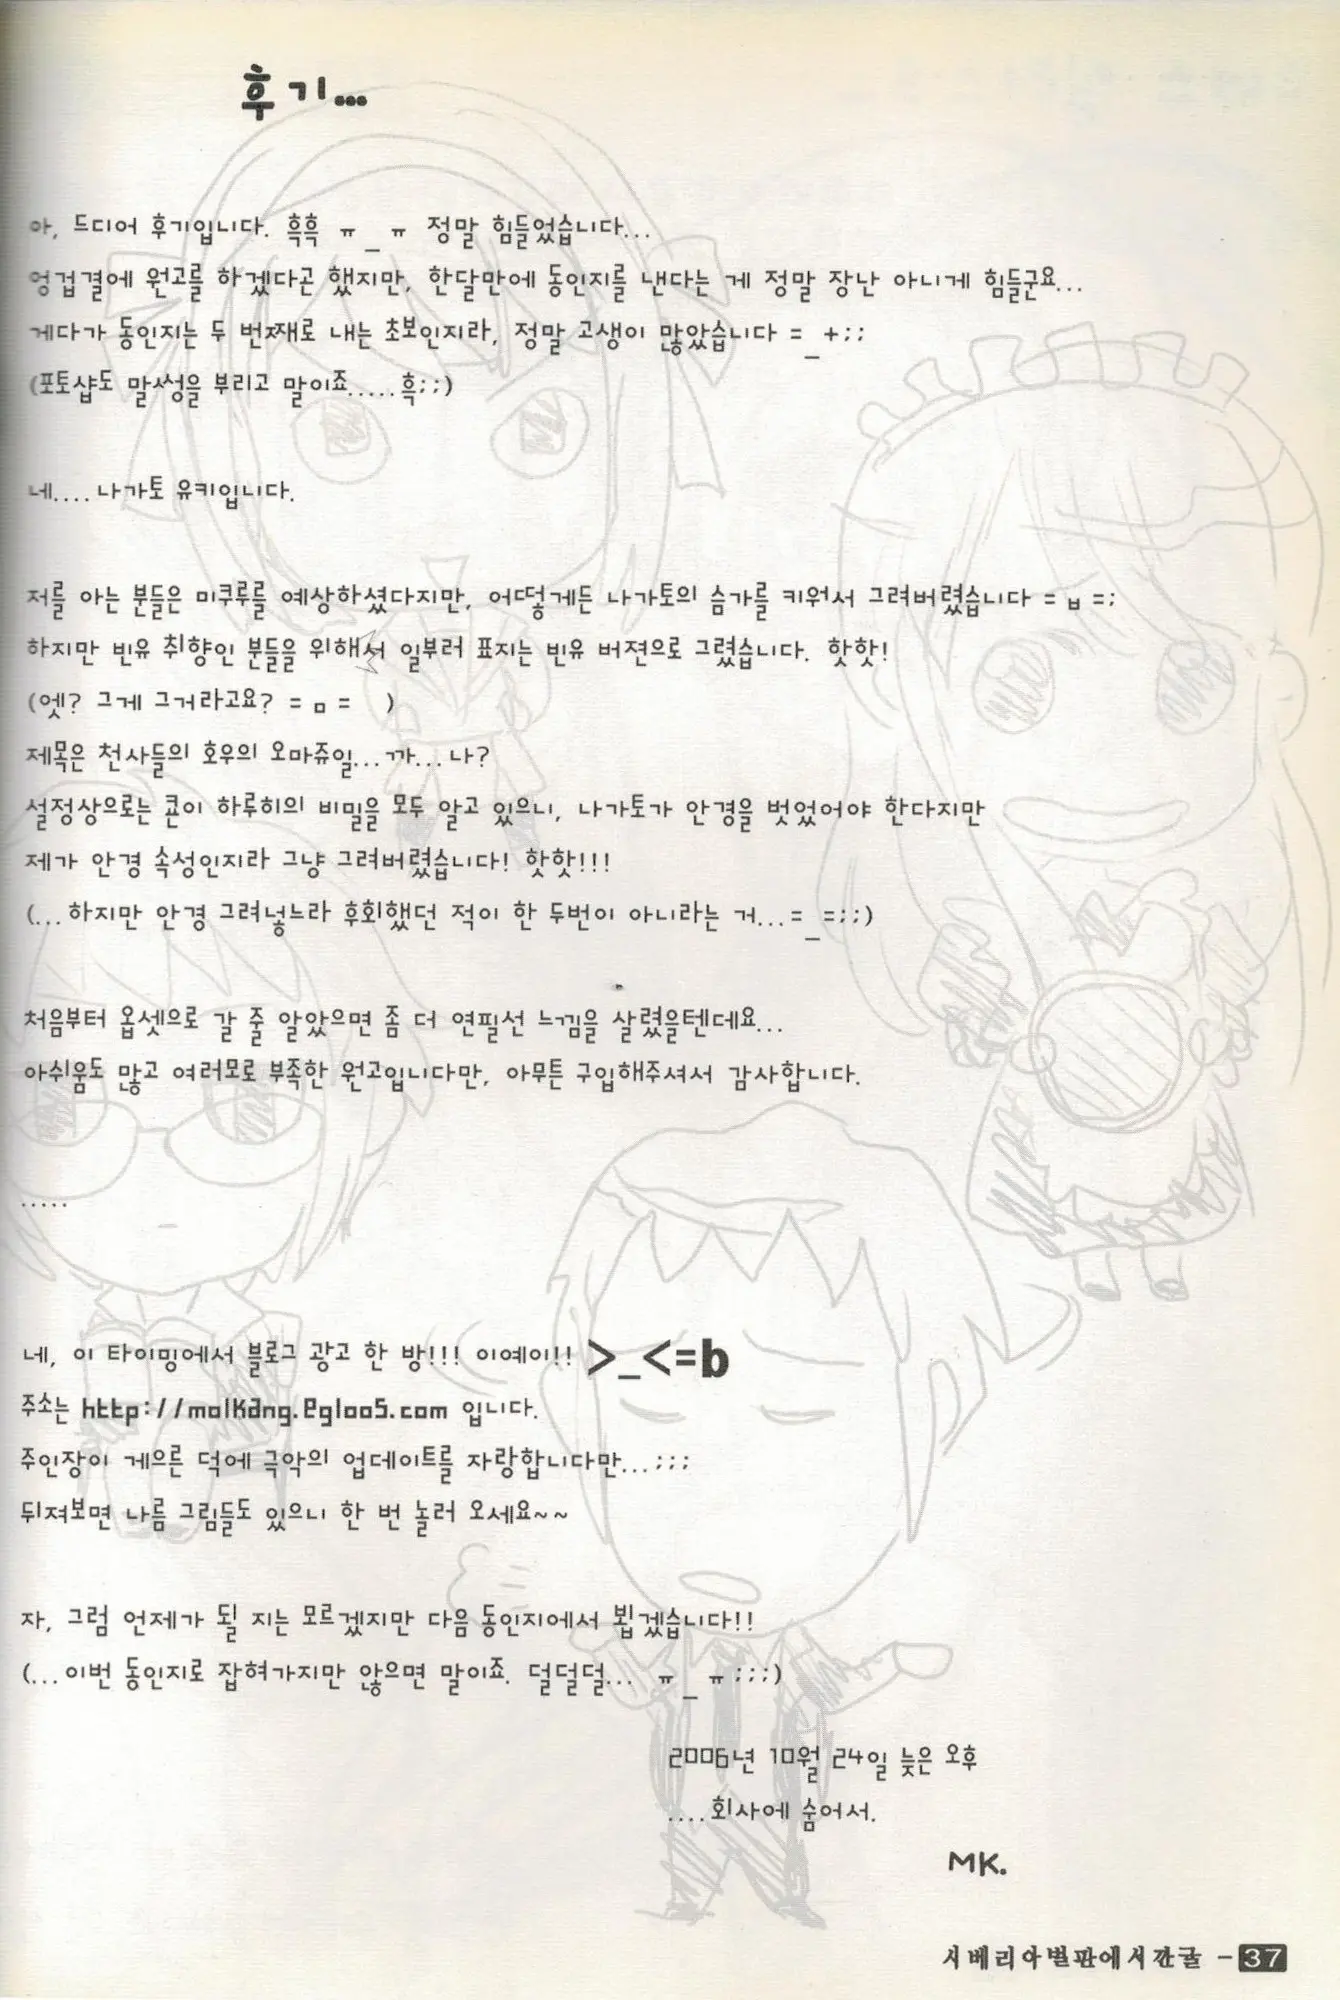 후기...
아, 드디어 후기입니다. 흑흑 ㅠ_ㅠ 정말 힘들었습니다...
엉겁결에 원고를 하겠다곤 했지만, 한달만에 동인지를 낸다는 게 정말 장난 아니게 힘들군요...
게다가 동인지는 두 번째로 내는 초보인지라, 정말 고생이 많았습니다 =_+;;
(포토샵도 말썽을 부리고 말이죠.....흑;;)
네....나가토 유키입니다.
저를 아는 분들은 미쿠루를 예상하셨다지만, 어떻게든 나가토의 슴가를 키워서 그려버렸습니다 =ㅂ=;
하지만 빈유 취향인 분들을 위해서 일부러 표지는 빈유 버젼으로 그렸습니다. 핫핫!
(엣? 그게 그거라고요? =ㅁ= )
제목은 천사들의 호우의 오마쥬일...까...나?
설정상으로는 쿈이 하루히의 비밀을 모두 알고 있으니, 나가토가 안경을 벗었어야 한다지만
제가 안경 속성인지라 그냥 그려버렸습니다! 핫핫!!!
(...하지만 안경 그려넣느라 후회했던 적이 한 두번이 아니라는 거...=_=;;)
처음부터 옵셋으로 갈 줄 알았으면 좀 더 연필선 느낌을 살렸을텐데요...
아쉬움도 많고 여러모로 부족한 원고입니다만, 아무튼 구입해주셔서 감사합니다.
.....
네, 이 타이밍에서 블로그 광고 한 방!!! 이예이!! >_<=b
주소는 http://molkang.egloos.com 입니다.
주인장이 게으른 덕에 극악의 업데이트를 자랑합니다만...;;;
뒤져보면 나름 그림들도 있으니 한 번 놀러 오세요~~
자, 그럼 언제가 될 지는 모르겠지만 다음 동인지에서 뵙겠습니다!!
(...이번 동인지로 잡혀가지만 않으면 말이죠. 덜덜덜... ㅠ_ㅠ;;;)
2006년 10월 24일 늦은 오후
....회사에 숨어서.
MK.
시베리아벌판에서깐귤 - 37